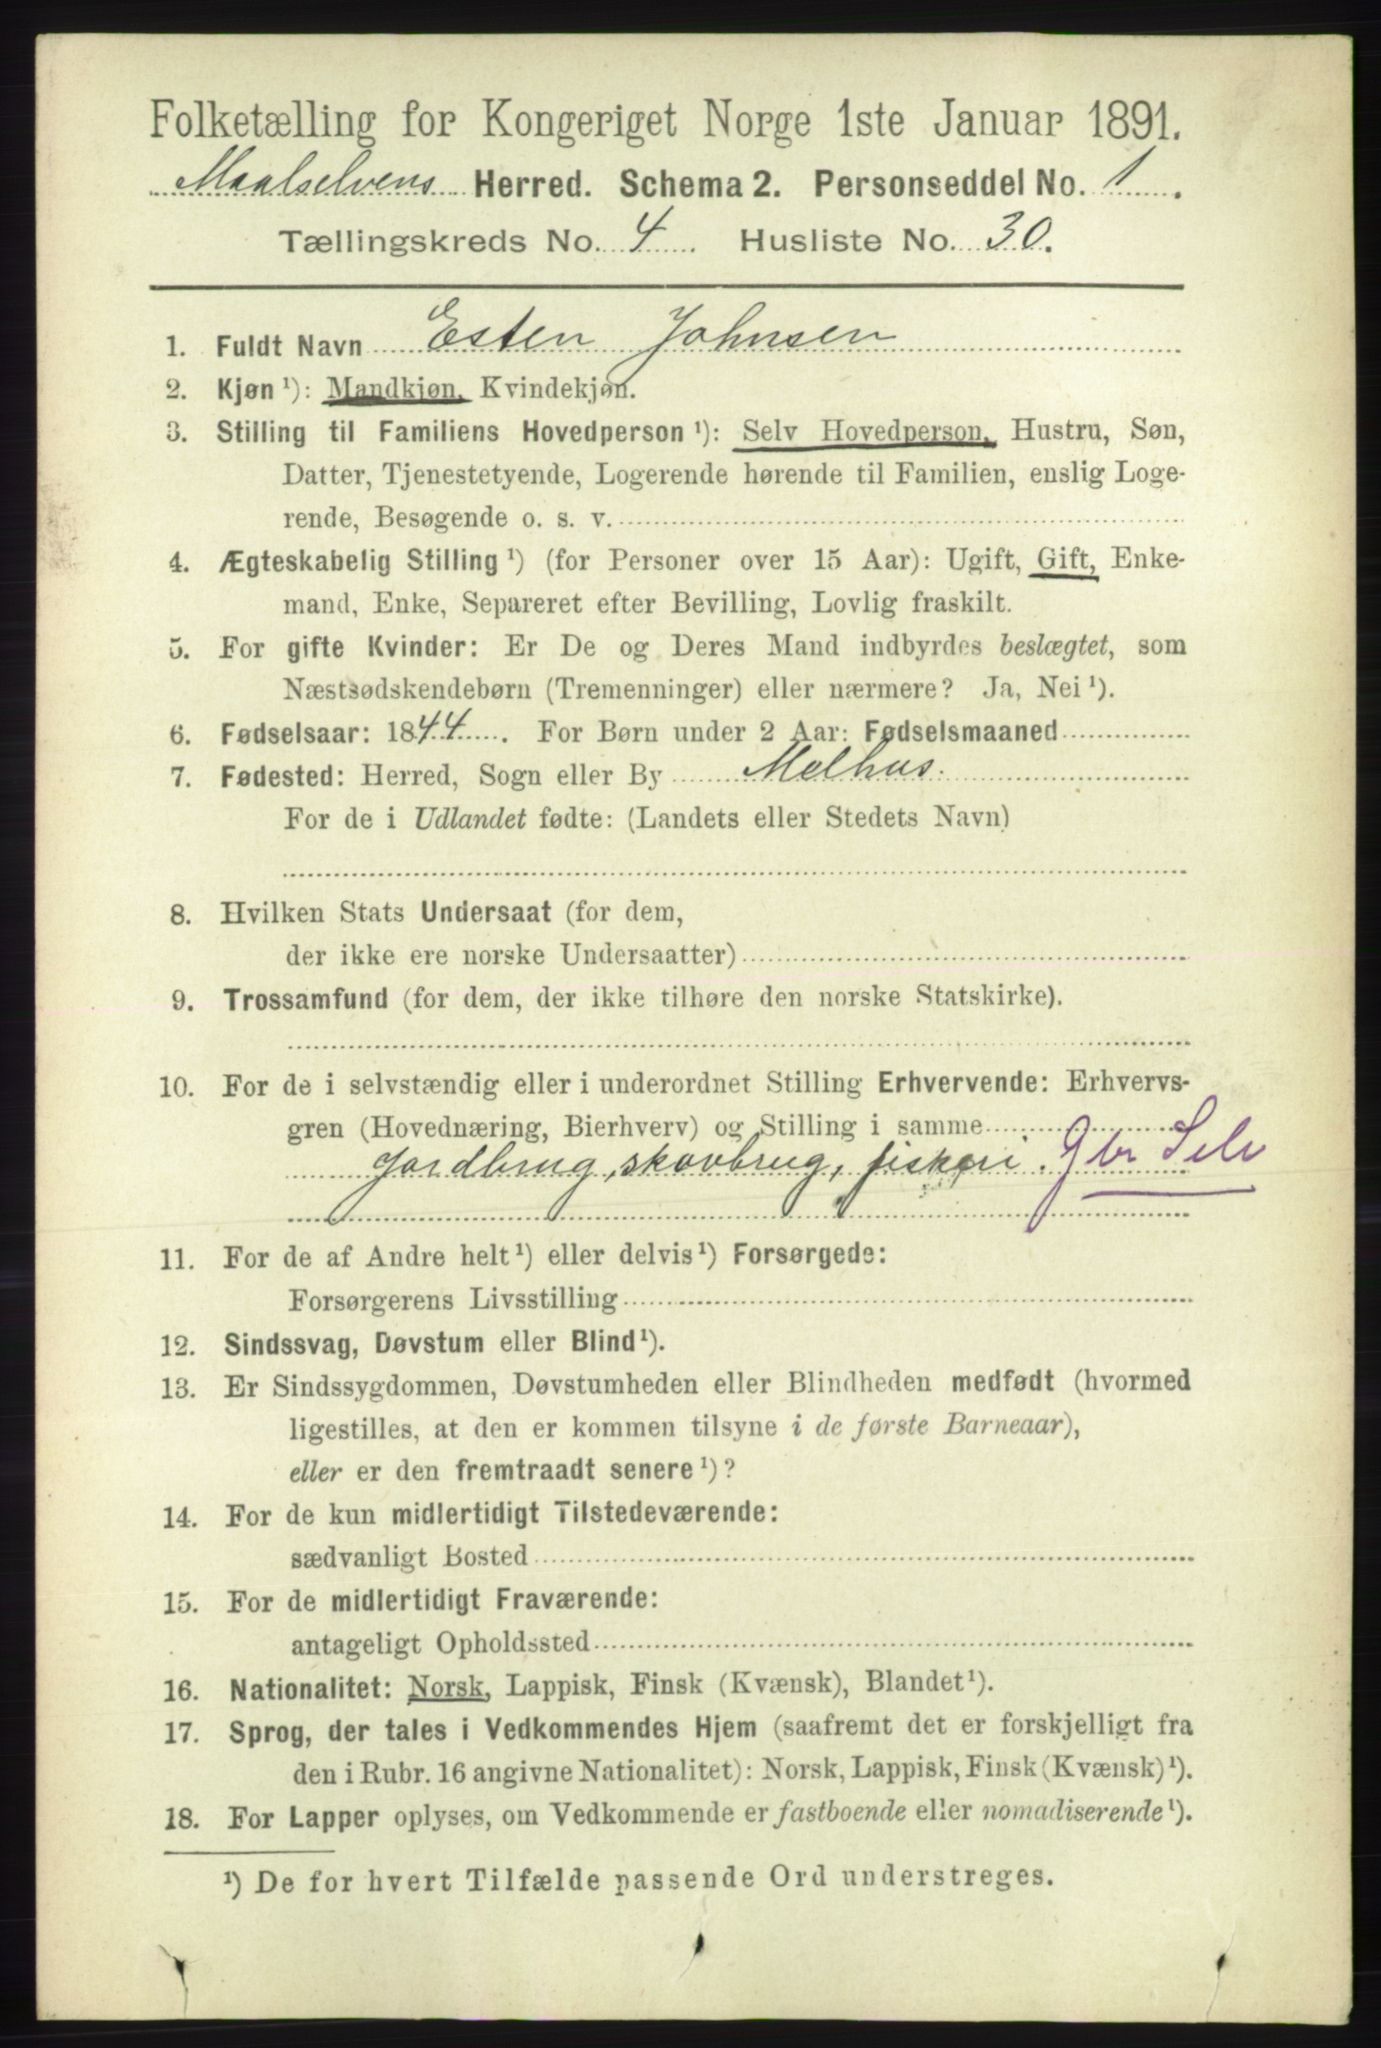 Folketælling for Kongeriget Norge 1ste Januar 1891.
Maalselvens Herred. Schema 2. Personseddel No. 1.
Tællingskreds No. 4. Husliste No. 30.
1. Fuldt Navn Esten Johnsen
2. Kjøn ¹): Mandkjøn, Kvindekjøn.
3. Stilling til Familiens Hovedperson ¹): Selv Hovedperson, Hustru, Søn,
Datter, Tjenestetyende, Logerende hørende til Familien, enslig Loge-
rende, Besøgende o. s. v.
4. Ægteskabelig Stilling ¹) (for Personer over 15 Aar): Ugift, Gift, Enke-
mand, Enke, Separeret efter Bevilling, Lovlig fraskilt.
5. For gifte Kvinder: Er De og Deres Mand indbyrdes beslægtet, som
Næstsødskendebørn (Tremenninger) eller nærmere? Ja, Nei ¹).
6. Fødselsaar: 1844. For Børn under 2 Aar: Fødselsmaaned
7. Fødested: Herred, Sogn eller By Melhus.
For de i Udlandet fødte: (Landets eller Stedets Navn)
8. Hvilken Stats Undersaat (for dem,
der ikke ere norske Undersaatter)
9. Trossamfund (for dem, der ikke tilhøre den norske Statskirke).
10. For de i selvstændig eller i underordnet Stilling Erhvervende: Erhvervs-
gren (Hovednæring, Bierhverv) og Stilling i samme
Jordbrug, skovbrug, fiskeri. Gbr Selv
11. For de af Andre helt ¹) eller delvis ¹) Forsørgede:
Forsørgerens Livsstilling
12. Sindssvag, Døvstum eller Blind ¹).
13. Er Sindssygdommen, Døvstumheden eller Blindheden medfødt (hvormed
ligestilles, at den er kommen tilsyne i de første Barneaar),
eller er den fremtraadt senere ¹)?
14. For de kun midlertidigt Tilstedeværende:
sædvanligt Bosted
15. For de midlertidigt Fraværende:
antageligt Opholdssted
16. Nationalitet: Norsk, Lappisk, Finsk (Kvænsk), Blandet ¹).
17. Sprog, der tales i Vedkommendes Hjem (saafremt det er forskjelligt fra
den i Rubr. 16 angivne Nationalitet): Norsk, Lappisk, Finsk (Kvænsk) ¹).
18. For Lapper oplyses, om Vedkommende er fastboende eller nomadiserende ¹).
¹) De for hvert Tilfælde passende Ord understreges.